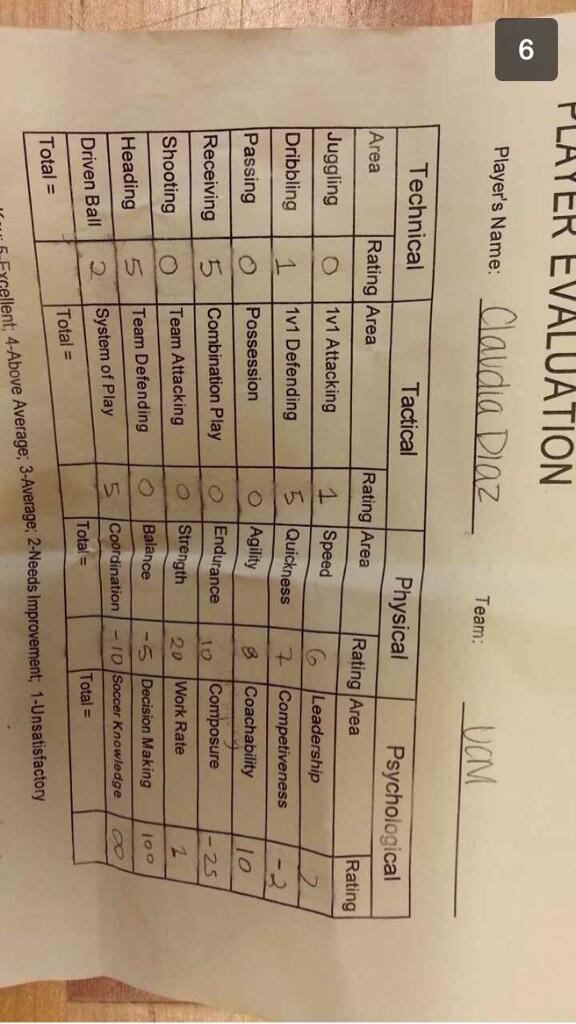 6
PLAYER EVALUATION
Player's Name: Claudia Diaz Team: UCM
Technical Tactical Physical Psychological
Area Rating Area Rating Area Rating Area Rating
Juggling 0 1v1 Attacking 1 Speed 6 Leadership
Dribbling 1 1v1 Defending 5 Quickness 7 Competiveness -2
Passing 0 Possession 0 Agility 8 Coachability 10
Receiving 5 Combination Play 0 Endurance 10 Composure -25
Shooting 0 Team Attacking 0 Strength 20 Work Rate 1
Heading 5 Team Defending 0 Balance -5 Decision Making 100
Driven Ball 2 System of Play 5 Coordination -10 Soccer Knowledge ∞
Total = Total = Total = Total =
Key: 5-Excellent; 4-Above Average; 3-Average; 2-Needs Improvement; 1-Unsatisfactory